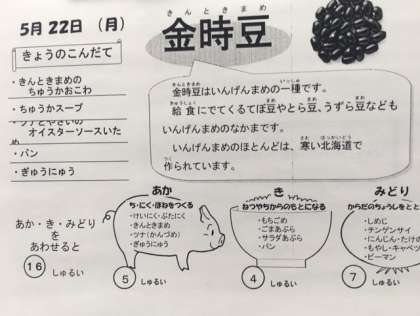 5月22日（月）
きょうのこんだて
・きんときまめの
ちゅうかおこわ
・ちゅうかスープ
・ツナとやさいの
オイスターソースいため
・パン
・ぎゅうにゅう
きんときまめ
金時豆
きんときまめ いっしゅ
金時豆はいんげんまめの一種です。
きゅうしょく
給食にでてくるてぼ豆やとら豆、うずら豆なども
いんげんまめのなかまです。
さむ ほっかいどう
いんげんまめのほとんどは、寒い北海道で
つく
作られています。
あか・き・みどり
を
あわせると
16 しゅるい
あか
ち・にく・ほねをつくる
・けいにく・ぶたにく
・きんときまめ
・ツナ（かんづめ）
・ぎゅうにゅう
5 しゅるい
き
ねつやちからのもとになる
・もちごめ
・ごまあぶら
・サラダあぶら
・パン
4 しゅるい
みどり
からだのちょうしをとと
・しめじ
・チンゲンサイ
・にんじん・たけの
・もやし・キャベツ
・ピーマン
7 しゅるい